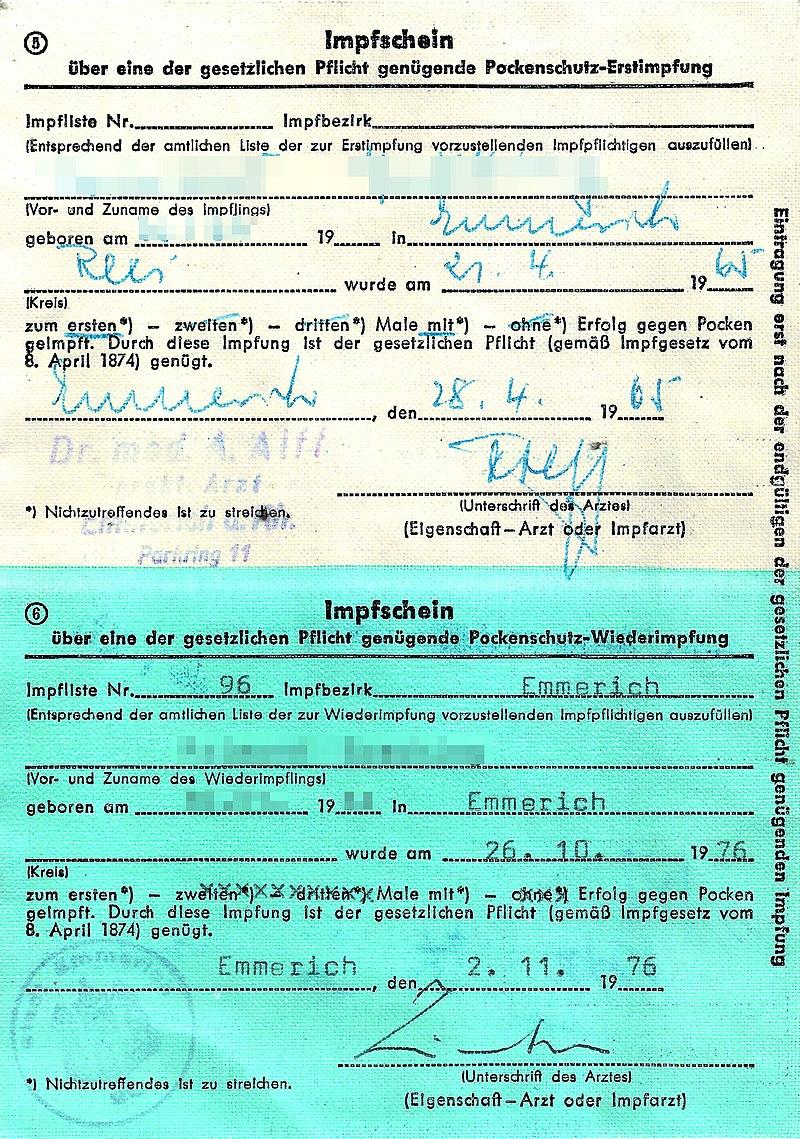 5 Impfschein
über eine der gesetzlichen Pflicht genügende Pockenschutz-Erstimpfung
Impfliste Nr. Impfbezirk
(Entsprechend der amtlichen Liste der zur Erstimpfung vorzustellenden Impfpflichtigen auszufüllen)
(Vor- und Zuname des Impflings)
geboren am 19 in Emmerich
Rees wurde am 21. 4. 19 65
(Kreis)
zum ersten*) – zweiten*) – dritten*) Male mit*) – ohne*) Erfolg gegen Pocken
geimpft. Durch diese Impfung ist der gesetzlichen Pflicht (gemäß Impfgesetz vom
8. April 1874) genügt.
Emmerich, den 28. 4. 19 65
Dr. med. A. Alff
prakt. Arzt
(Unterschrift des Arztes)
*) Nichtzutreffendes ist zu streichen.
(Eigenschaft–Arzt oder Impfarzt)
Parkring 11
6 Impfschein
über eine der gesetzlichen Pflicht genügende Pockenschutz-Wiederimpfung
Impfliste Nr. 96 Impfbezirk Emmerich
(Entsprechend der amtlichen Liste der zur Wiederimpfung vorzustellenden Impfpflichtigen auszufüllen)
(Vor- und Zuname des Wiederimpflings)
geboren am 19 in Emmerich
wurde am 26. 10. 19 76
(Kreis)
zum ersten*) – zweiten*) – dritten*) Male mit*) – ohne*) Erfolg gegen Pocken
geimpft. Durch diese Impfung ist der gesetzlichen Pflicht (gemäß Impfgesetz vom
8. April 1874) genügt.
Emmerich, den 2. 11. 19 76
Stadt Emmerich
(Unterschrift des Arztes)
*) Nichtzutreffendes ist zu streichen.
(Eigenschaft–Arzt oder Impfarzt)
Eintragung erst nach der endgültigen der gesetzlichen Pflicht genügenden Impfung